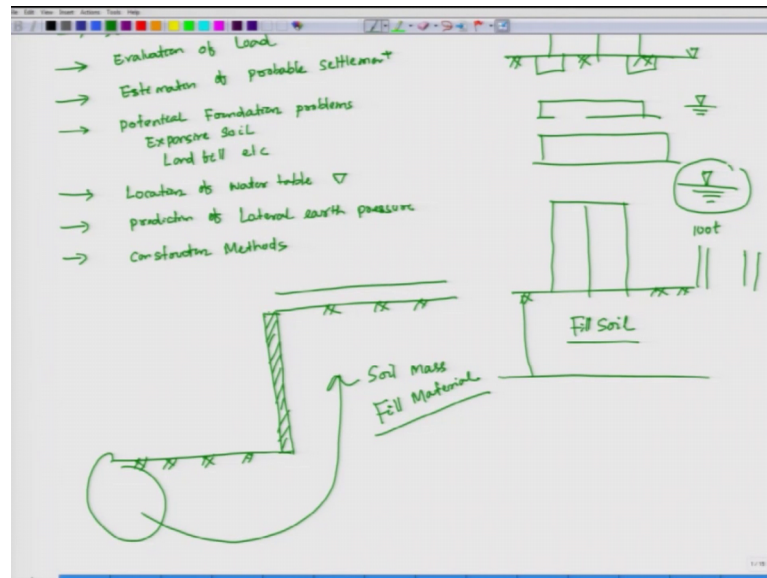 Edit View Insert Actions Tools Help
→ Evaluation of Load
→ Estimation of probable settlement
→ Potential Foundation problems
Expansive Soil
Land fill etc
→ Location of water table ▽
→ prediction of Lateral earth pressure
→ Construction Methods
100t
Fill Soil
Soil Mass
Fill Material